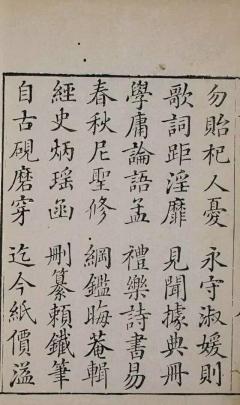 勿貽杞人憂 永守淑媛則
歌詞距淫靡 見聞據典冊
學庸論語孟 禮樂詩書易
春秋尼聖修 綱鑑晦菴輯
經史炳瑤函 刪纂賴鐵筆
自古硯磨穿 迄今紙價溢